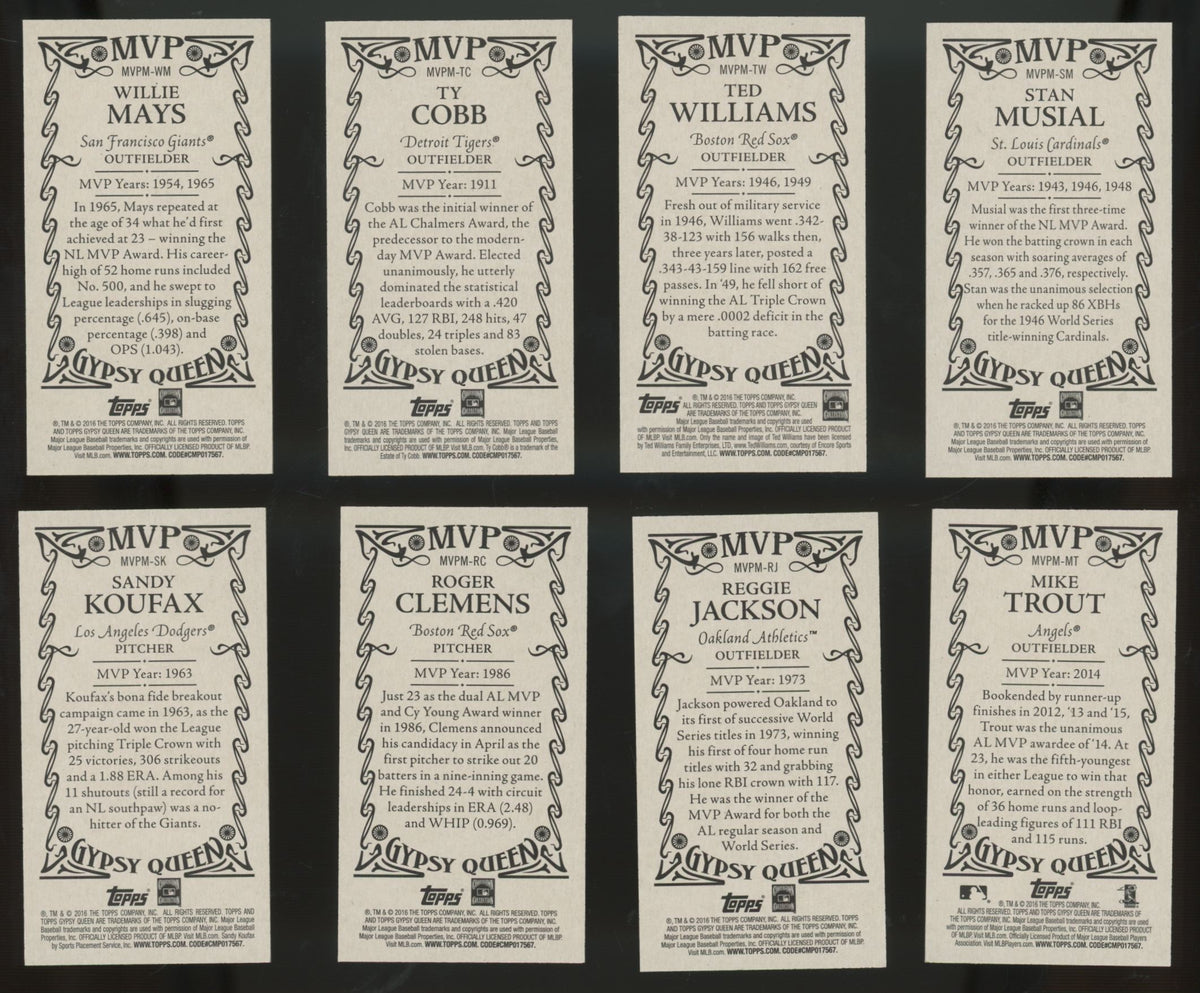 MVP
MVPM-WM
WILLIE
MAYS
San Francisco Giants®
OUTFIELDER
MVP Years: 1954, 1965
In 1965, Mays repeated at
the age of 34 what he'd first
achieved at 23 – winning the
NL MVP Award. His career-
high of 52 home runs included
No. 500, and he swept to
League leaderships in slugging
percentage (.645), on-base
percentage (.398) and
OPS (1.043).
GYPSY QUEEN
Topps®
®, TM & © 2016 THE TOPPS COMPANY, INC. ALL RIGHTS RESERVED. TOPPS
AND TOPPS GYPSY QUEEN ARE TRADEMARKS OF THE TOPPS COMPANY, INC.
Major League Baseball trademarks and copyrights are used with permission of
Major League Baseball Properties, Inc. OFFICIALLY LICENSED PRODUCT OF MLBP.
Visit MLB.com. WWW.TOPPS.COM. CODE#CMP017567.
MVP
MVPM-TC
TY
COBB
Detroit Tigers®
OUTFIELDER
MVP Year: 1911
Cobb was the initial winner of
the AL Chalmers Award, the
predecessor to the modern-
day MVP Award. Elected
unanimously, he utterly
dominated the statistical
leaderboards with a .420
AVG, 127 RBI, 248 hits, 47
doubles, 24 triples and 83
stolen bases.
GYPSY QUEEN
Topps®
®, TM & © 2016 THE TOPPS COMPANY, INC. ALL RIGHTS RESERVED. TOPPS AND TOPPS
GYPSY QUEEN ARE TRADEMARKS OF THE TOPPS COMPANY, INC. Major League Baseball
trademarks and copyrights are used with permission of Major League Baseball Properties,
Inc. OFFICIALLY LICENSED PRODUCT OF MLBP. Visit MLB.com. Ty Cobb® is a trademark of the
Estate of Ty Cobb. WWW.TOPPS.COM. CODE#CMP017567.
MVP
MVPM-TW
TED
WILLIAMS
Boston Red Sox®
OUTFIELDER
MVP Years: 1946, 1949
Fresh out of military service
in 1946, Williams went .342-
38-123 with 156 walks then,
three years later, posted a
.343-43-159 line with 162 free
passes. In '49, he fell short of
winning the AL Triple Crown
by a mere .0002 deficit in the
batting race.
GYPSY QUEEN
Topps®
®, TM & © 2016 THE TOPPS COMPANY, INC.
ALL RIGHTS RESERVED. TOPPS AND TOPPS GYPSY QUEEN
ARE TRADEMARKS OF THE TOPPS COMPANY, INC.
Major League Baseball trademarks and copyrights are used
with permission of Major League Baseball Properties, Inc. OFFICIALLY LICENSED PRODUCT
OF MLBP. Visit MLB.com. Only the name and image of Ted Williams have been licensed
by Ted Williams Family Enterprises, LTD, www.TedWilliams.com, courtesy of Encore Sports
and Entertainment, LLC. WWW.TOPPS.COM. CODE#CMP017567.
MVP
MVPM-SM
STAN
MUSIAL
St. Louis Cardinals®
OUTFIELDER
MVP Years: 1943, 1946, 1948
Musial was the first three-time
winner of the NL MVP Award.
He won the batting crown in each
season with soaring averages of
.357, .365 and .376, respectively.
Stan was the unanimous selection
when he racked up 86 XBHs
for the 1946 World Series
title-winning Cardinals.
GYPSY QUEEN
Topps®
®, TM & © 2016 THE TOPPS COMPANY, INC. ALL RIGHTS RESERVED. TOPPS
AND TOPPS GYPSY QUEEN ARE TRADEMARKS OF THE TOPPS COMPANY, INC.
Major League Baseball trademarks and copyrights are used with permission of
Major League Baseball Properties, Inc. OFFICIALLY LICENSED PRODUCT OF MLBP.
Visit MLB.com. WWW.TOPPS.COM. CODE#CMP017567.
MVP
MVPM-SK
SANDY
KOUFAX
Los Angeles Dodgers®
PITCHER
MVP Year: 1963
Koufax's bona fide breakout
campaign came in 1963, as the
27-year-old won the League
pitching Triple Crown with
25 victories, 306 strikeouts
and a 1.88 ERA. Among his
11 shutouts (still a record for
an NL southpaw) was a no-
hitter of the Giants.
GYPSY QUEEN
Topps®
®, TM & © 2016 THE TOPPS COMPANY, INC. ALL RIGHTS RESERVED. TOPPS AND
TOPPS GYPSY QUEEN ARE TRADEMARKS OF THE TOPPS COMPANY, INC. Major League
Baseball trademarks and copyrights are used with permission of Major League Baseball
Properties, Inc. OFFICIALLY LICENSED PRODUCT OF MLBP. Visit MLB.com. Sandy Koufax
by Sports Placement Service, Inc. WWW.TOPPS.COM. CODE#CMP017567.
MVP
MVPM-RC
ROGER
CLEMENS
Boston Red Sox®
PITCHER
MVP Year: 1986
Just 23 as the dual AL MVP
and Cy Young Award winner
in 1986, Clemens announced
his candidacy in April as the
first pitcher to strike out 20
batters in a nine-inning game.
He finished 24-4 with circuit
leaderships in ERA (2.48)
and WHIP (0.969).
GYPSY QUEEN
Topps®
®, TM & © 2016 THE TOPPS COMPANY, INC. ALL RIGHTS RESERVED. TOPPS
AND TOPPS GYPSY QUEEN ARE TRADEMARKS OF THE TOPPS COMPANY, INC.
Major League Baseball trademarks and copyrights are used with permission of
Major League Baseball Properties, Inc. OFFICIALLY LICENSED PRODUCT OF MLBP.
Visit MLB.com. WWW.TOPPS.COM. CODE#CMP017567.
MVP
MVPM-RJ
REGGIE
JACKSON
Oakland Athletics™
OUTFIELDER
MVP Year: 1973
Jackson powered Oakland to
its first of successive World
Series titles in 1973, winning
his first of four home run
titles with 32 and grabbing
his lone RBI crown with 117.
He was the winner of the
MVP Award for both the
AL regular season and
World Series.
GYPSY QUEEN
Topps®
®, TM & © 2016 THE TOPPS COMPANY, INC. ALL RIGHTS RESERVED. TOPPS
AND TOPPS GYPSY QUEEN ARE TRADEMARKS OF THE TOPPS COMPANY, INC.
Major League Baseball trademarks and copyrights are used with permission of
Major League Baseball Properties, Inc. OFFICIALLY LICENSED PRODUCT OF MLBP.
Visit MLB.com. WWW.TOPPS.COM. CODE#CMP017567.
MVP
MVPM-MT
MIKE
TROUT
Angels®
OUTFIELDER
MVP Year: 2014
Bookended by runner-up
finishes in 2012, '13 and '15,
Trout was the unanimous
AL MVP awardee of '14. At
23, he was the fifth-youngest
in either League to win that
honor, earned on the strength
of 36 home runs and loop-
leading figures of 111 RBI
and 115 runs.
GYPSY QUEEN
Topps®
®, TM & © 2016 THE TOPPS COMPANY, INC.
ALL RIGHTS RESERVED. TOPPS AND TOPPS GYPSY QUEEN ARE TRADEMARKS OF
THE TOPPS COMPANY, INC. Major League Baseball trademarks and copyrights are used
with permission of Major League Baseball Properties, Inc. OFFICIALLY LICENSED PRODUCT
OF MLBP. Visit MLB.com. Officially Licensed Product of Major League Baseball Players
Association. Visit MLBPlayers.com. WWW.TOPPS.COM. CODE#CMP017567.